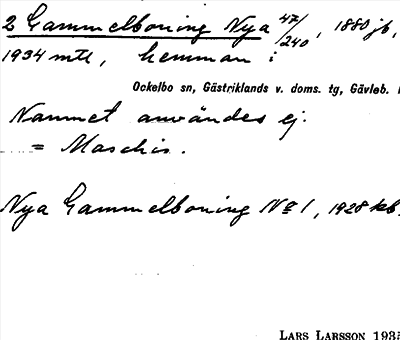 2 Gammelboning Nya 47/240, 1880 jb,
1934 mtl, hemman i
Ockelbo sn, Gästriklands v. doms. tg, Gävleb.
Namnet användes ej.
= Maschis.
Nya Gammelboning No 1, 1928 kb.
LARS LARSSON 1935